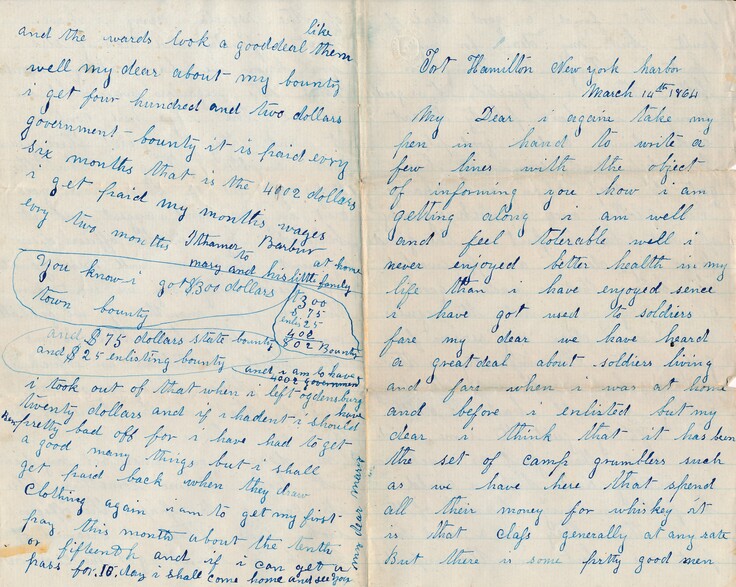 Fort Hamilton New york harbor
March 14th 1864
My Dear i again take my
pen in hand to write a
few lines with the object
of informing you how i am
getting along i am well
and feel tolerable well i
never enjoyed better health in my
life than i have enjoyed sence
i have got used to soldiers
fare my dear we have heard
a greatdeal about soldiers living
and fare when i was at home
and before i enlisted but my
dear i think that it has bun
the set of camp grumblers such
as we have here that spend
all their money for whiskey it
is that class generally at any rate
But there is some pritty good men
and the wards look a gooddeal like them
well my dear about my bounty
i get four hundred and two dollars
government bounty it is paid evry
six months that is the 4002 dollars
i get paid my months wages
evry two months
Ithamer Barbur
to mary and his little family at home
You know i got $300 dollars
town bounty
$300
$75
enlis 25
402
802 Bounty
and $75 dollars state bounty
and $25 enlisting bounty and i am to have
4002 government
i took out of that when i left ogdensburg
twenty dollars and if i hadent i should have
ben pretty bad off for i have had to get
a good many things but i shall
get paid back when they draw
clothing again i am to get my first
pay this month about the tenth
or fifteenth and if i can get a
pass for 10 day i shall come home and see you
my dear mary